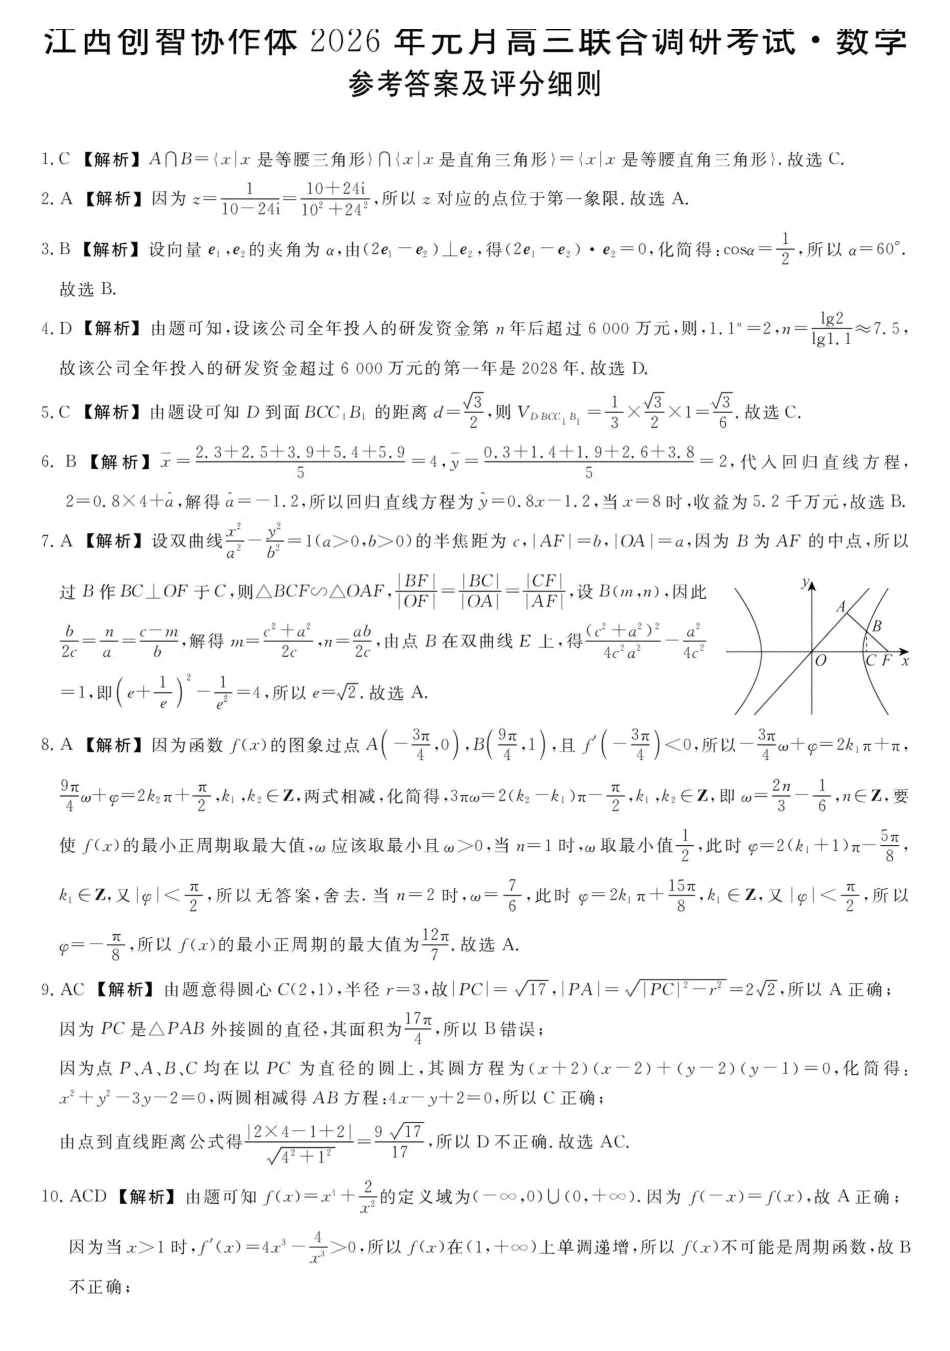 江西创智协作体 2026 年元月高三联合调研考试·数学
参考答案及评分细则
1. C 【解析】A∩B={x|x 是等腰三角形}∩{x|x 是直角三角形}={x|x 是等腰直角三角形}.故选 C.
2. A 【解析】因为 z=1/(10-24i)=(10+24i)/(10²+24²),所以 z 对应的点位于第一象限.故选 A.
3. B 【解析】设向量 e₁,e₂的夹角为 α,由(2e₁-e₂)⊥e₂,得(2e₁-e₂)·e₂=0,化简得:cosα=1/2,所以 α=60°.
故选 B.
4. D 【解析】由题可知,设该公司全年投入的研发资金第 n 年后超过 6 000 万元,则,1.1ⁿ=2,n=lg2/lg1.1≈7.5,
故该公司全年投入的研发资金超过 6 000 万元的第一年是 2028 年.故选 D.
5. C 【解析】由题设可知 D 到面 BCC₁B₁ 的距离 d=√3/2,则 V_{D-BCC₁B₁}=1/3×√3/2×1=√3/6.故选 C.
6. B 【解析】x̄=(2.3+2.5+3.9+5.4+5.9)/5=4,ȳ=(0.3+1.4+1.9+2.6+3.8)/5=2,代入回归直线方程,
2=0.8×4+â,解得 â=-1.2,所以回归直线方程为 ŷ=0.8x-1.2,当 x=8 时,收益为 5.2 千万元,故选 B.
7. A 【解析】设双曲线 x²/a²-y²/b²=1(a>0,b>0)的半焦距为 c,|AF|=b,|OA|=a,因为 B 为 AF 的中点,所以
过 B 作 BC⊥OF 于 C,则△BCF∽△OAF,|BF|/|OF|=|BC|/|OA|=|CF|/|AF|,设 B(m,n),因此
b/2c=n/a=(c-m)/b,解得 m=(c²+a²)/2c,n=ab/2c,由点 B 在双曲线 E 上,得(c²+a²)²/4c²a²-a²/4c²
=1,即(e+1/e)²-1/e²=4,所以 e=√2.故选 A.
y
A
B
O
C
F
x
8. A 【解析】因为函数 f(x)的图象过点 A(-3π/4,0),B(9π/4,1),且 f′(-3π/4)<0,所以-3π/4ω+φ=2k₁π+π,
9π/4ω+φ=2k₂π+π/2,k₁,k₂∈Z,两式相减,化简得,3πω=2(k₂-k₁)π-π/2,k₁,k₂∈Z,即 ω=2n/3-1/6,n∈Z,要
使 f(x)的最小正周期取最大值,ω 应该取最小且 ω>0,当 n=1 时,ω 取最小值 1/2,此时 φ=2(k₁+1)π-5π/8,
k₁∈Z,又|φ|<π/2,所以无答案,舍去.当 n=2 时,ω=7/6,此时 φ=2k₁π+15π/8,k₁∈Z,又|φ|<π/2,所以
φ=-π/8,所以 f(x)的最小正周期的最大值为 12π/7.故选 A.
9. AC 【解析】由题意得圆心 C(2,1),半径 r=3,故|PC|=√17,|PA|=√(|PC|²-r²)=2√2,所以 A 正确;
因为 PC 是△PAB 外接圆的直径,其面积为 17π/4,所以 B 错误;
因为点 P、A、B、C 均在以 PC 为直径的圆上,其圆方程为(x+2)(x-2)+(y-2)(y-1)=0,化简得:
x²+y²-3y-2=0,两圆相减得 AB 方程:4x-y+2=0,所以 C 正确;
由点到直线距离公式得|2×4-1+2|/√(4²+1²)=9√17/17,所以 D 不正确.故选 AC.
10. ACD 【解析】由题可知 f(x)=x⁴+2/x²的定义域为(-∞,0)∪(0,+∞).因为 f(-x)=f(x),故 A 正确;
因为当 x>1 时,f′(x)=4x³-4/x³>0,所以 f(x)在(1,+∞)上单调递增,所以 f(x)不可能是周期函数,故 B
不正确;